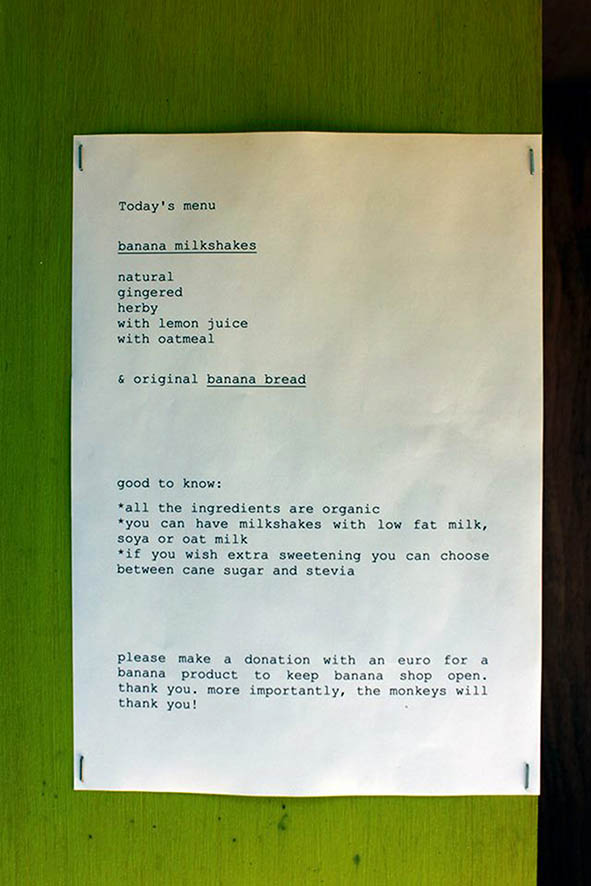 Today's menu
banana milkshakes
natural
gingered
herby
with lemon juice
with oatmeal
& original banana bread
good to know:
*all the ingredients are organic
*you can have milkshakes with low fat milk,
soya or oat milk
*if you wish extra sweetening you can choose
between cane sugar and stevia
please make a donation with an euro for a
banana product to keep banana shop open.
thank you. more importantly, the monkeys will
thank you!